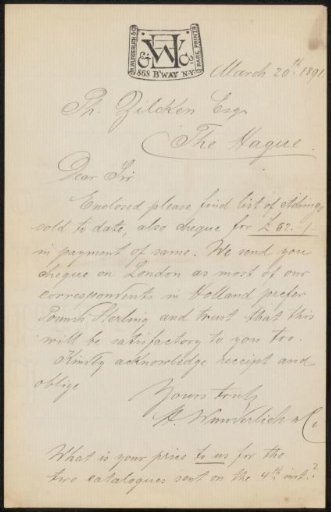 H. WUNDERLICH & CO
RARE PRINTS
HW & Co
868 B'WAY N.Y.
March 20th 1891
Ph. Zilcken Esq
The Hague.
Dear Sir
Enclosed please find list of etchings
sold to date, also cheque for
in payment of same. We send you
cheque on London as most of our
correspondents in Holland prefer
Pounds Sterling and trust that this
will be satisfactory to you too.
Kindly acknowledge receipt and
oblige
Yours truly
H. Wunderlich & Co
What is your price to us for the
two catalogues sent on the 4th inst?